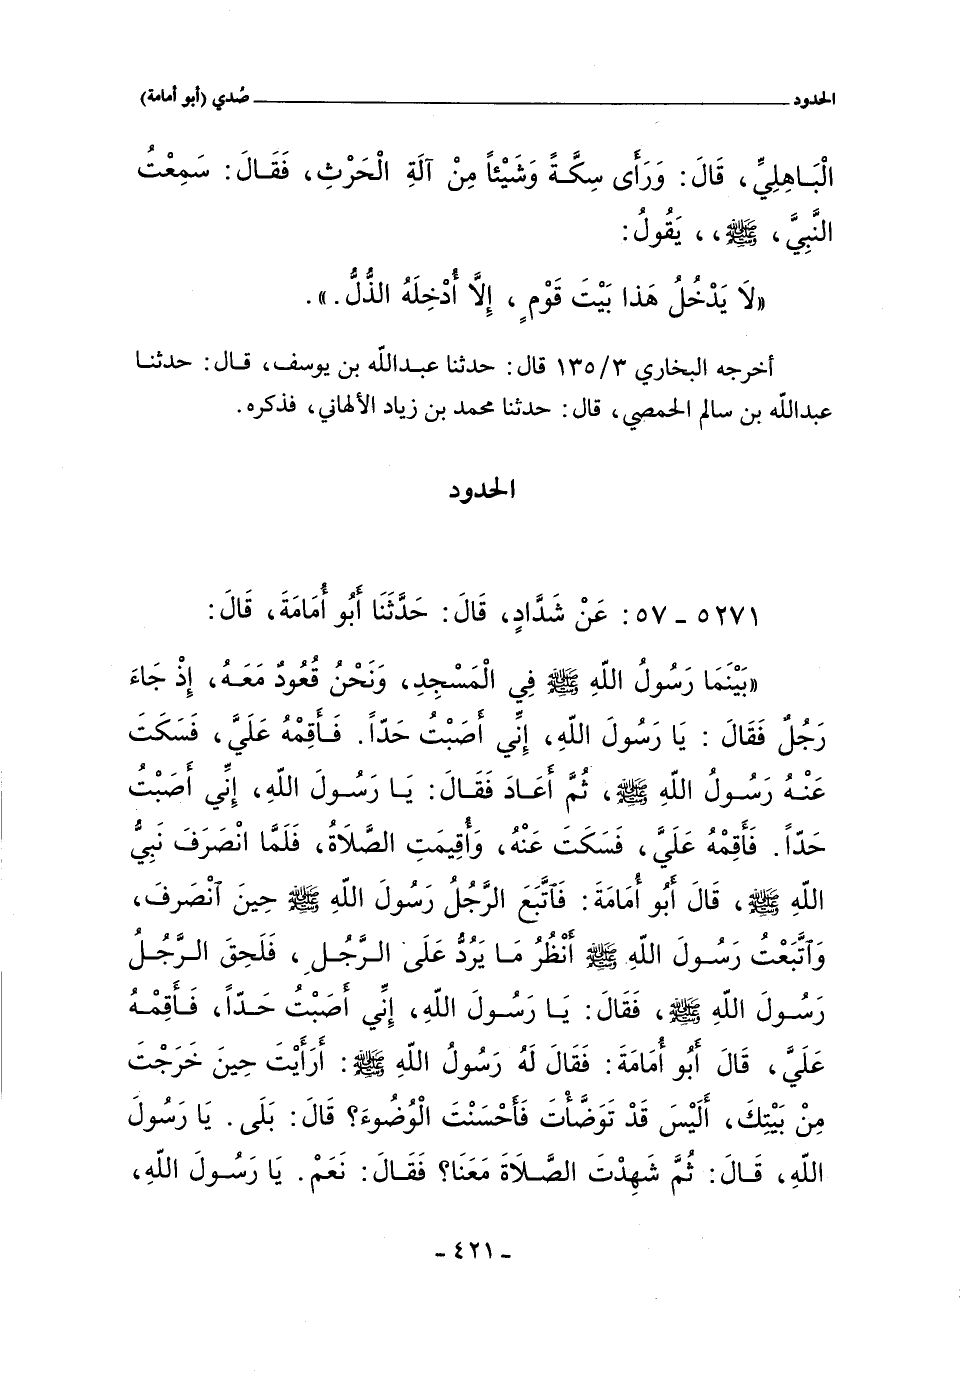 الحدود ــــــــــ صُدي (أبو أمامة)
الْبَاهِلِيِّ، قَالَ: وَرَأَى سِكَّةً وَشَيْئاً مِنْ آلَةِ الْحَرْثِ، فَقَالَ: سَمِعْتُ
النَّبِيَّ، ﷺ،، يَقُولُ:
«لَا يَدْخُلُ هَذا بَيْتَ قَوْمٍ، إِلَّا أُدْخِلَهُ الذُّلُّ.».
أخرجه البخاري ١٣٥/٣ قال: حدثنا عبدالله بن يوسف، قال: حدثنا
عبدالله بن سالم الحمصي، قال: حدثنا محمد بن زياد الألهاني، فذكره.
الحدود
٥٢٧١ - ٥٧: عَنْ شَدَّادٍ، قَالَ: حَدَّثَنَا أَبُو أُمَامَةَ، قَالَ:
«بَيْنَمَا رَسُولُ اللهِ ﷺ فِي الْمَسْجِدِ، وَنَحْنُ قُعُودٌ مَعَهُ، إِذْ جَاءَ
رَجُلٌ فَقَالَ: يَا رَسُولَ اللهِ، إِنِّي أَصَبْتُ حَدّاً. فَأَقِمْهُ عَلَيَّ، فَسَكَتَ
عَنْهُ رَسُولُ اللهِ ﷺ، ثُمَّ أَعَادَ فَقَالَ: يَا رَسُولَ اللهِ، إِنِّي أَصَبْتُ
حَدّاً. فَأَقِمْهُ عَلَيَّ، فَسَكَتَ عَنْهُ، وَأُقِيمَتِ الصَّلَاةُ، فَلَمَّا انْصَرَفَ نَبِيُّ
اللهِ ﷺ، قَالَ أَبُو أُمَامَةَ: فَاتَّبَعَ الرَّجُلُ رَسُولَ اللهِ ﷺ حِينَ ٱنْصَرفَ،
وَٱتَّبَعْتُ رَسُولَ اللهِ ﷺ أَنْظُرُ مَا يَرُدُّ عَلَى الرَّجُلِ، فَلَحِقَ الرَّجُلُ
رَسُولَ اللهِ ﷺ، فَقَالَ: يَا رَسُولَ اللهِ، إِنِّي أَصَبْتُ حَدّاً، فَأَقِمْهُ
عَلَيَّ، قَالَ أَبُو أُمَامَةَ: فَقَالَ لَهُ رَسُولُ اللهِ ﷺ: أَرَأَيْتَ حِينَ خَرَجْتَ
مِنْ بَيْتِكَ، أَلَيْسَ قَدْ تَوَضَّأْتَ فَأَحْسَنْتَ الْوُضُوءَ؟ قَالَ: بَلَى. يَا رَسُولَ
اللهِ، قَالَ: ثُمَّ شَهِدْتَ الصَّلَاةَ مَعَنَا؟ فَقَالَ: نَعَمْ. يَا رَسُولَ اللهِ،
- ٤٢١ -